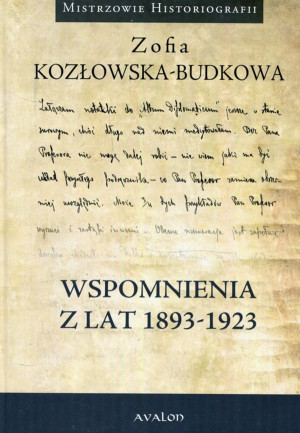 Mistrzowie Historiografii
Zofia
Kozłowska-Budkowa
Załączam notatki do „Album diplomaticum" jeszcze w stanie
surowym, choć długo nad niemi medytowałam. Bez Pana
Profesora nie mogę dalej robić – nie wiem jaki ma być
układ przyszłego podręcznika – co Pan Profesor zamierza
niej uwzględnić. Może z tych przykładów Pan Profesor
innemi – Obecna numeracja jest zupełnie
WSPOMNIENIA
Z LAT 1893-1923
AVALON